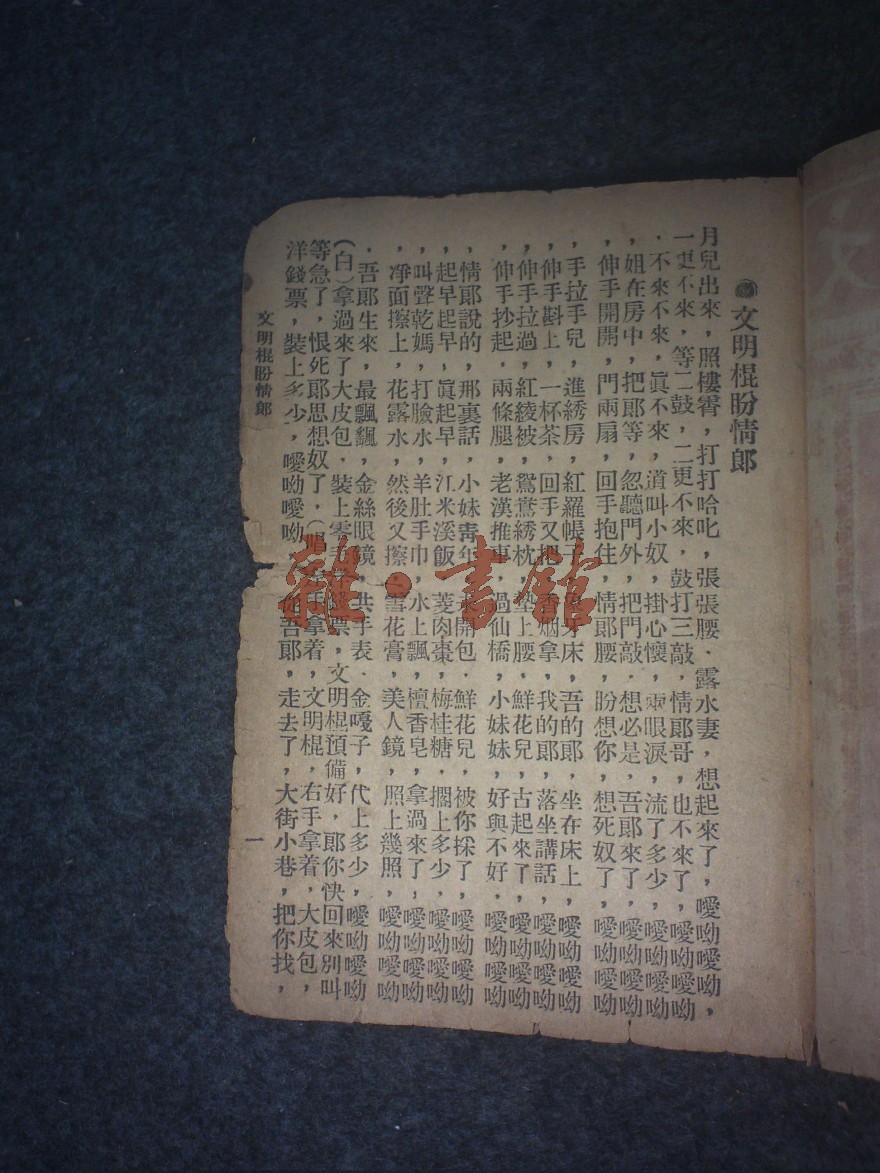 文明棍盼情郎
月兒出來，照樓霄，打打哈叱，張張腰．露水妻，想起來了，噯呦噯呦，
一更不來，等二鼓，二更不來，鼓打三敲，情郎哥，也不來了，噯呦噯呦
．不來不來，眞不來，道叫小奴，掛心懷，兩眼淚，流了多少，噯呦噯呦
，姐在房中，把郎等，忽聽門外，把門敲．想必是，吾郎來了，噯呦噯呦
，伸手開開，門兩扇，回手抱住，情郎腰，盼想你，想死奴了，噯呦噯呦
，手拉手兒，進綉房，紅羅帳子，牙床，吾的郎，坐在床上，噯呦噯呦
，伸手斟上，一杯茶，回手又把，香烟拿，我的郎，落坐講話，噯呦噯呦
，伸手拉過，紅綾被，鴛鴦綉枕，墊上腰，鮮花兒，古起來了，噯呦噯呦
，伸手抄起，兩條腿，老漢推車，過仙橋，小妹妹，好與不好，噯呦噯呦
，情郎說的，那裏話，小妹靑年，未開包．鮮花兒，被你採了，噯呦噯呦
，起早起早，眞起早，江米溪飯，菱肉棗，梅桂糖，擱上多少，噯呦噯呦
，叫聲乾媽，打臉水，羊肚手巾，水上飄，檀香皂，拿過來了，噯呦噯呦
，凈面擦上，花露水，然後又擦，雪花膏，美人鏡，照上幾照，噯呦噯呦
．吾郎生來，最飄飄，金絲眼鏡，共手表．金嘎子，代上多少，噯呦噯呦
（白）拿過來了大皮包．裝上零錢票，文明棍預備好，郎你快回來別叫
等急了，恨死郎思想奴了，（唱）手拿着，文明棍，右手拿着，大皮包，
洋錢票，裝上多少，噯呦噯呦，吾郎，走去了，大街小巷，把你找，
文明棍盼情郎
一
雜·書館